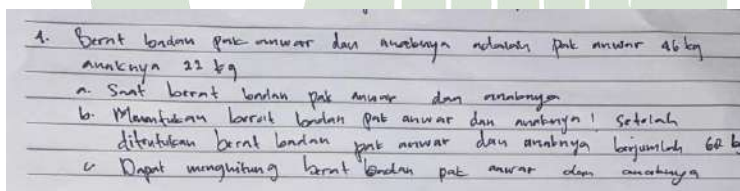 1. Berat badan pak anwar dan anaknya adalah pak anwar 46 kg
anaknya 22 kg
a. Saat berat badan pak anwar dan anaknya
b. Menentukan berat badan pak anwar dan anaknya! setelah
ditentukan berat badan pak anwar dan anaknya berjumlah 68
c Dapat menghitung berat badan pak anwar dan anaknya